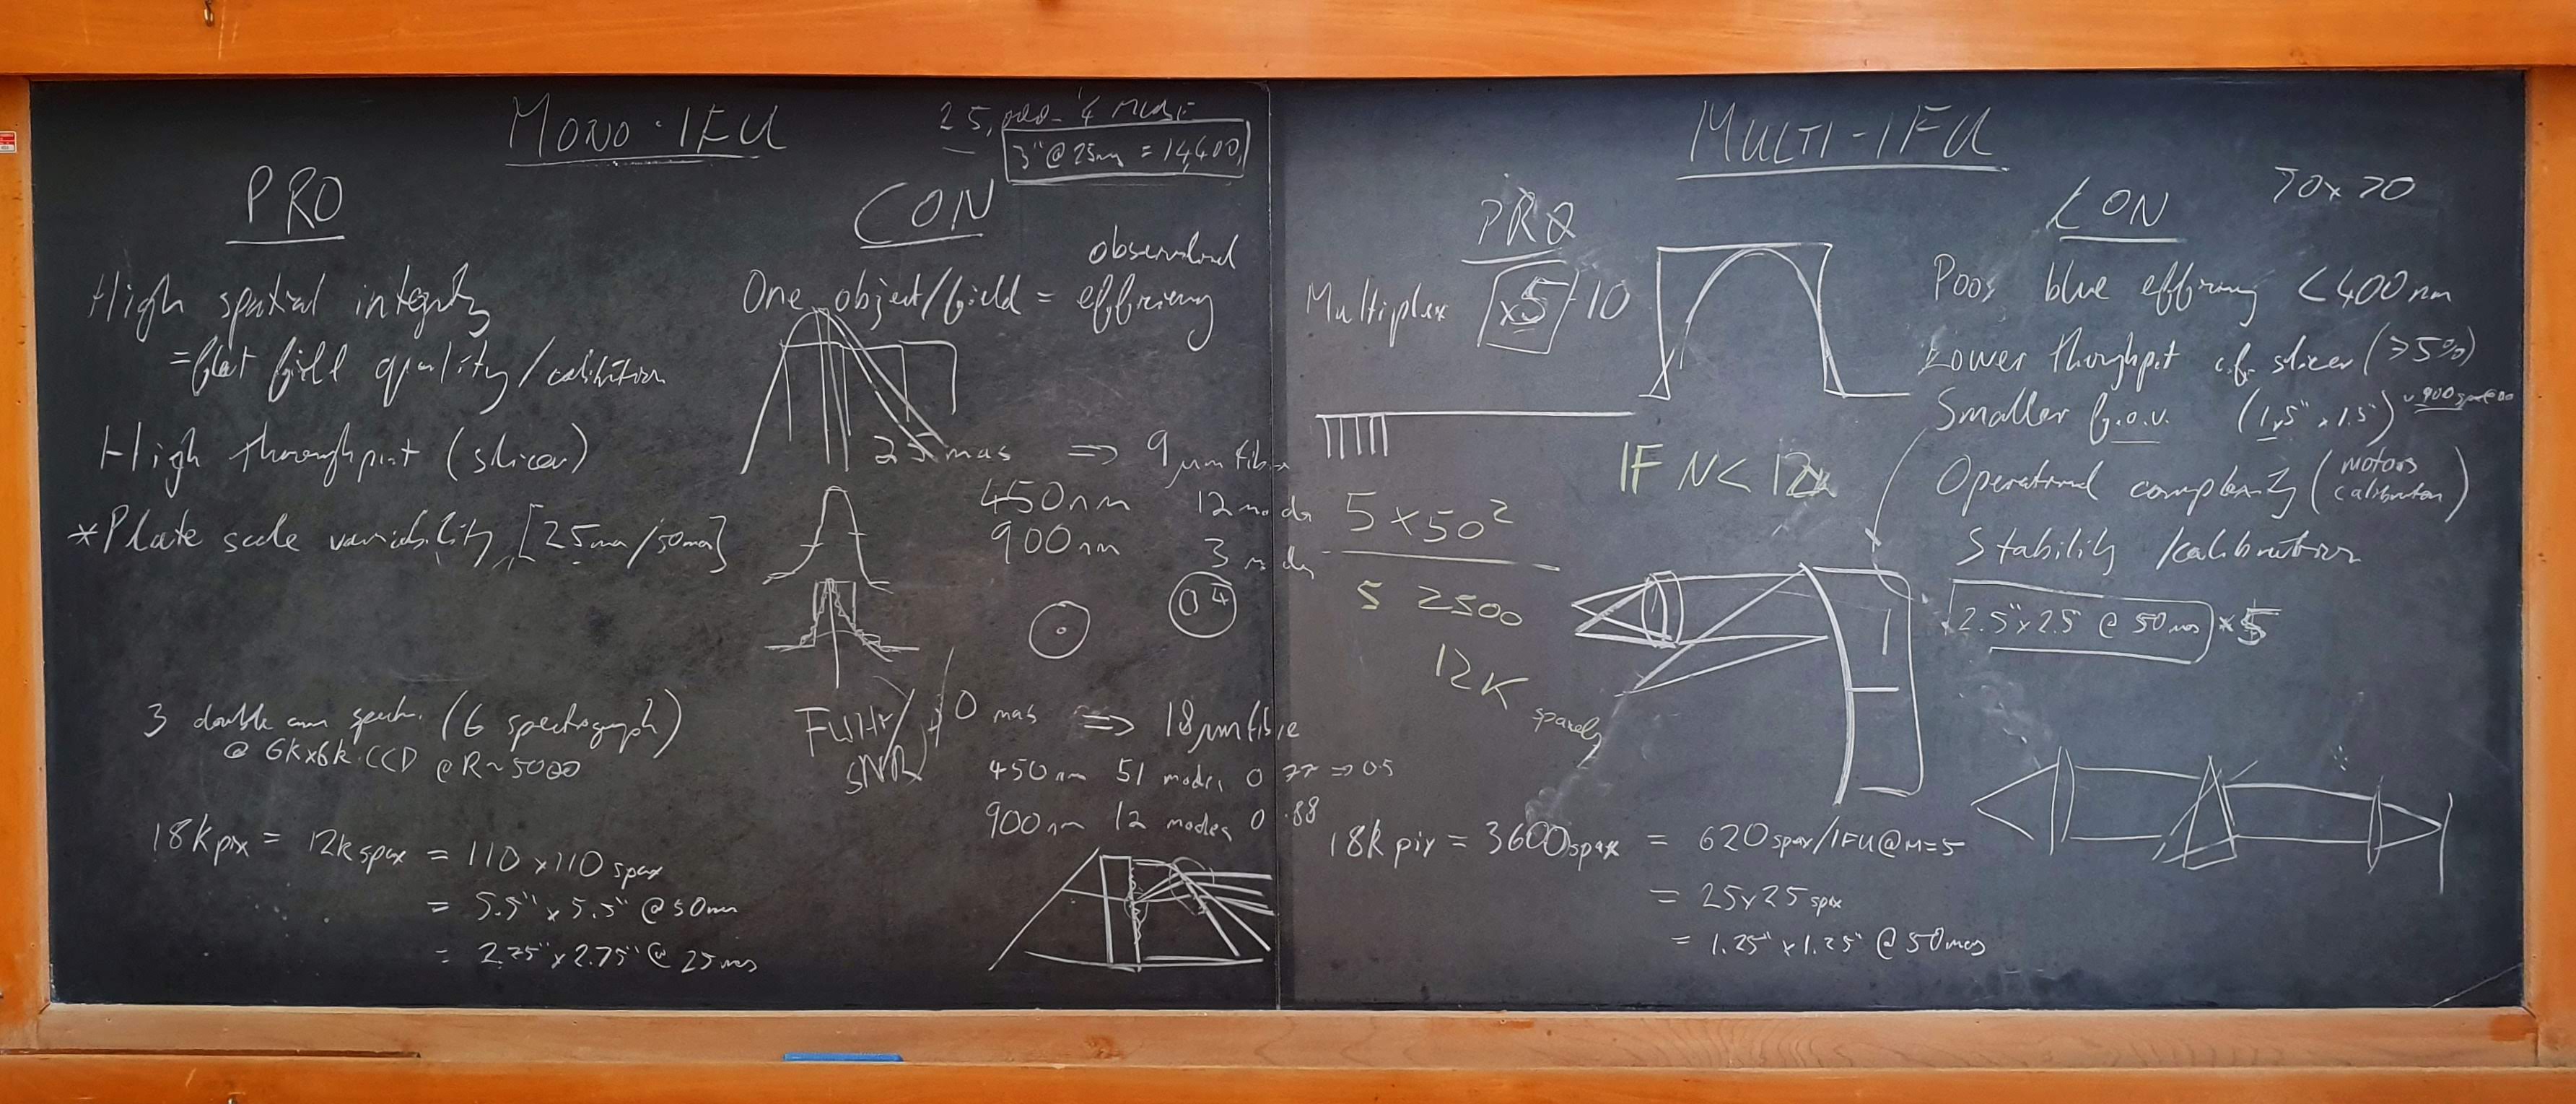 MONO-IFU
3" @ 25mas = 14,400
PRO
High spatial integrity
= flat field quality/calibration
High throughput (slicer)
*Plate scale variability [25mas/50mas]
3 double arm spectr. (6 spectrograph)
@ 6kx6k CCD @R~5000
18k pix = 12k spax = 110 x110 spax
= 5.5" x 5.5" @ 50mas
= 2.75" x 2.75" @ 25mas
CON
observational
One object/field = efficiency
25 mas => 9 μm fibre
450nm 12 modes
900nm 3 modes
FWHM/
SNR
50 mas => 18μm fibre
450nm 51 modes 0.77 => 0.5
900nm 12 modes 0.88
MULTI-IFU
PRO
Multiplex x5-10
IF N< 12
5 x 50²
5 2500
12K
spaxels
18k pix = 3600spax = 620 spax/IFU@M=5
= 25x25 spax
= 1.25" x 1.25" @ 50mas
CON
70x70
Poor blue efficiency <400nm
Lower throughput c.f. slicer (>5%)
Smaller f.o.v. (1.5" x 1.5") ~900
Operational complexity (motors
calibration)
Stability /calibration
2.5" x 2.5 @ 50mas x 5